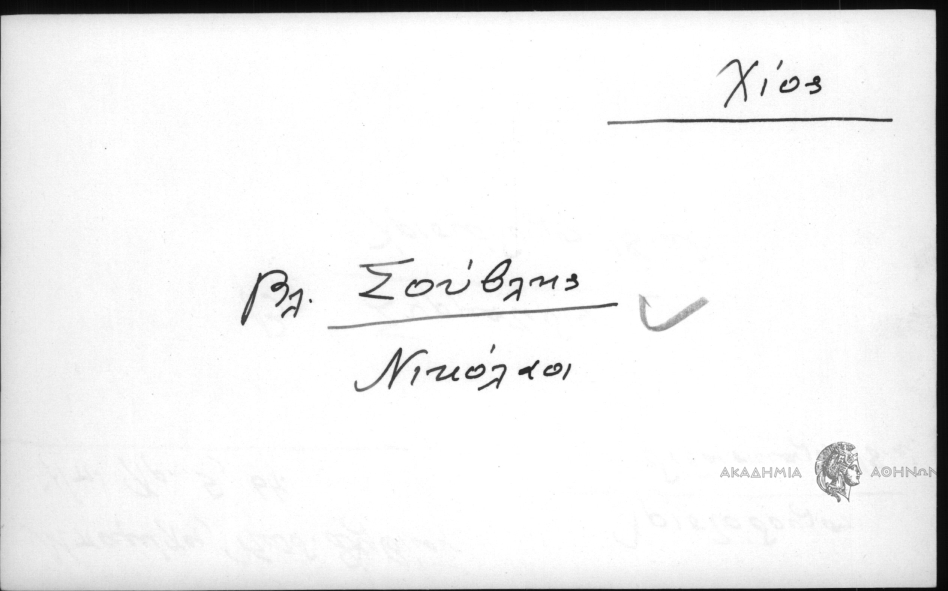 Χίος
βλ. Σούβλης
Νικόλαοι
ΑΚΑΔΗΜΙΑ ΑΘΗΝΩΝ